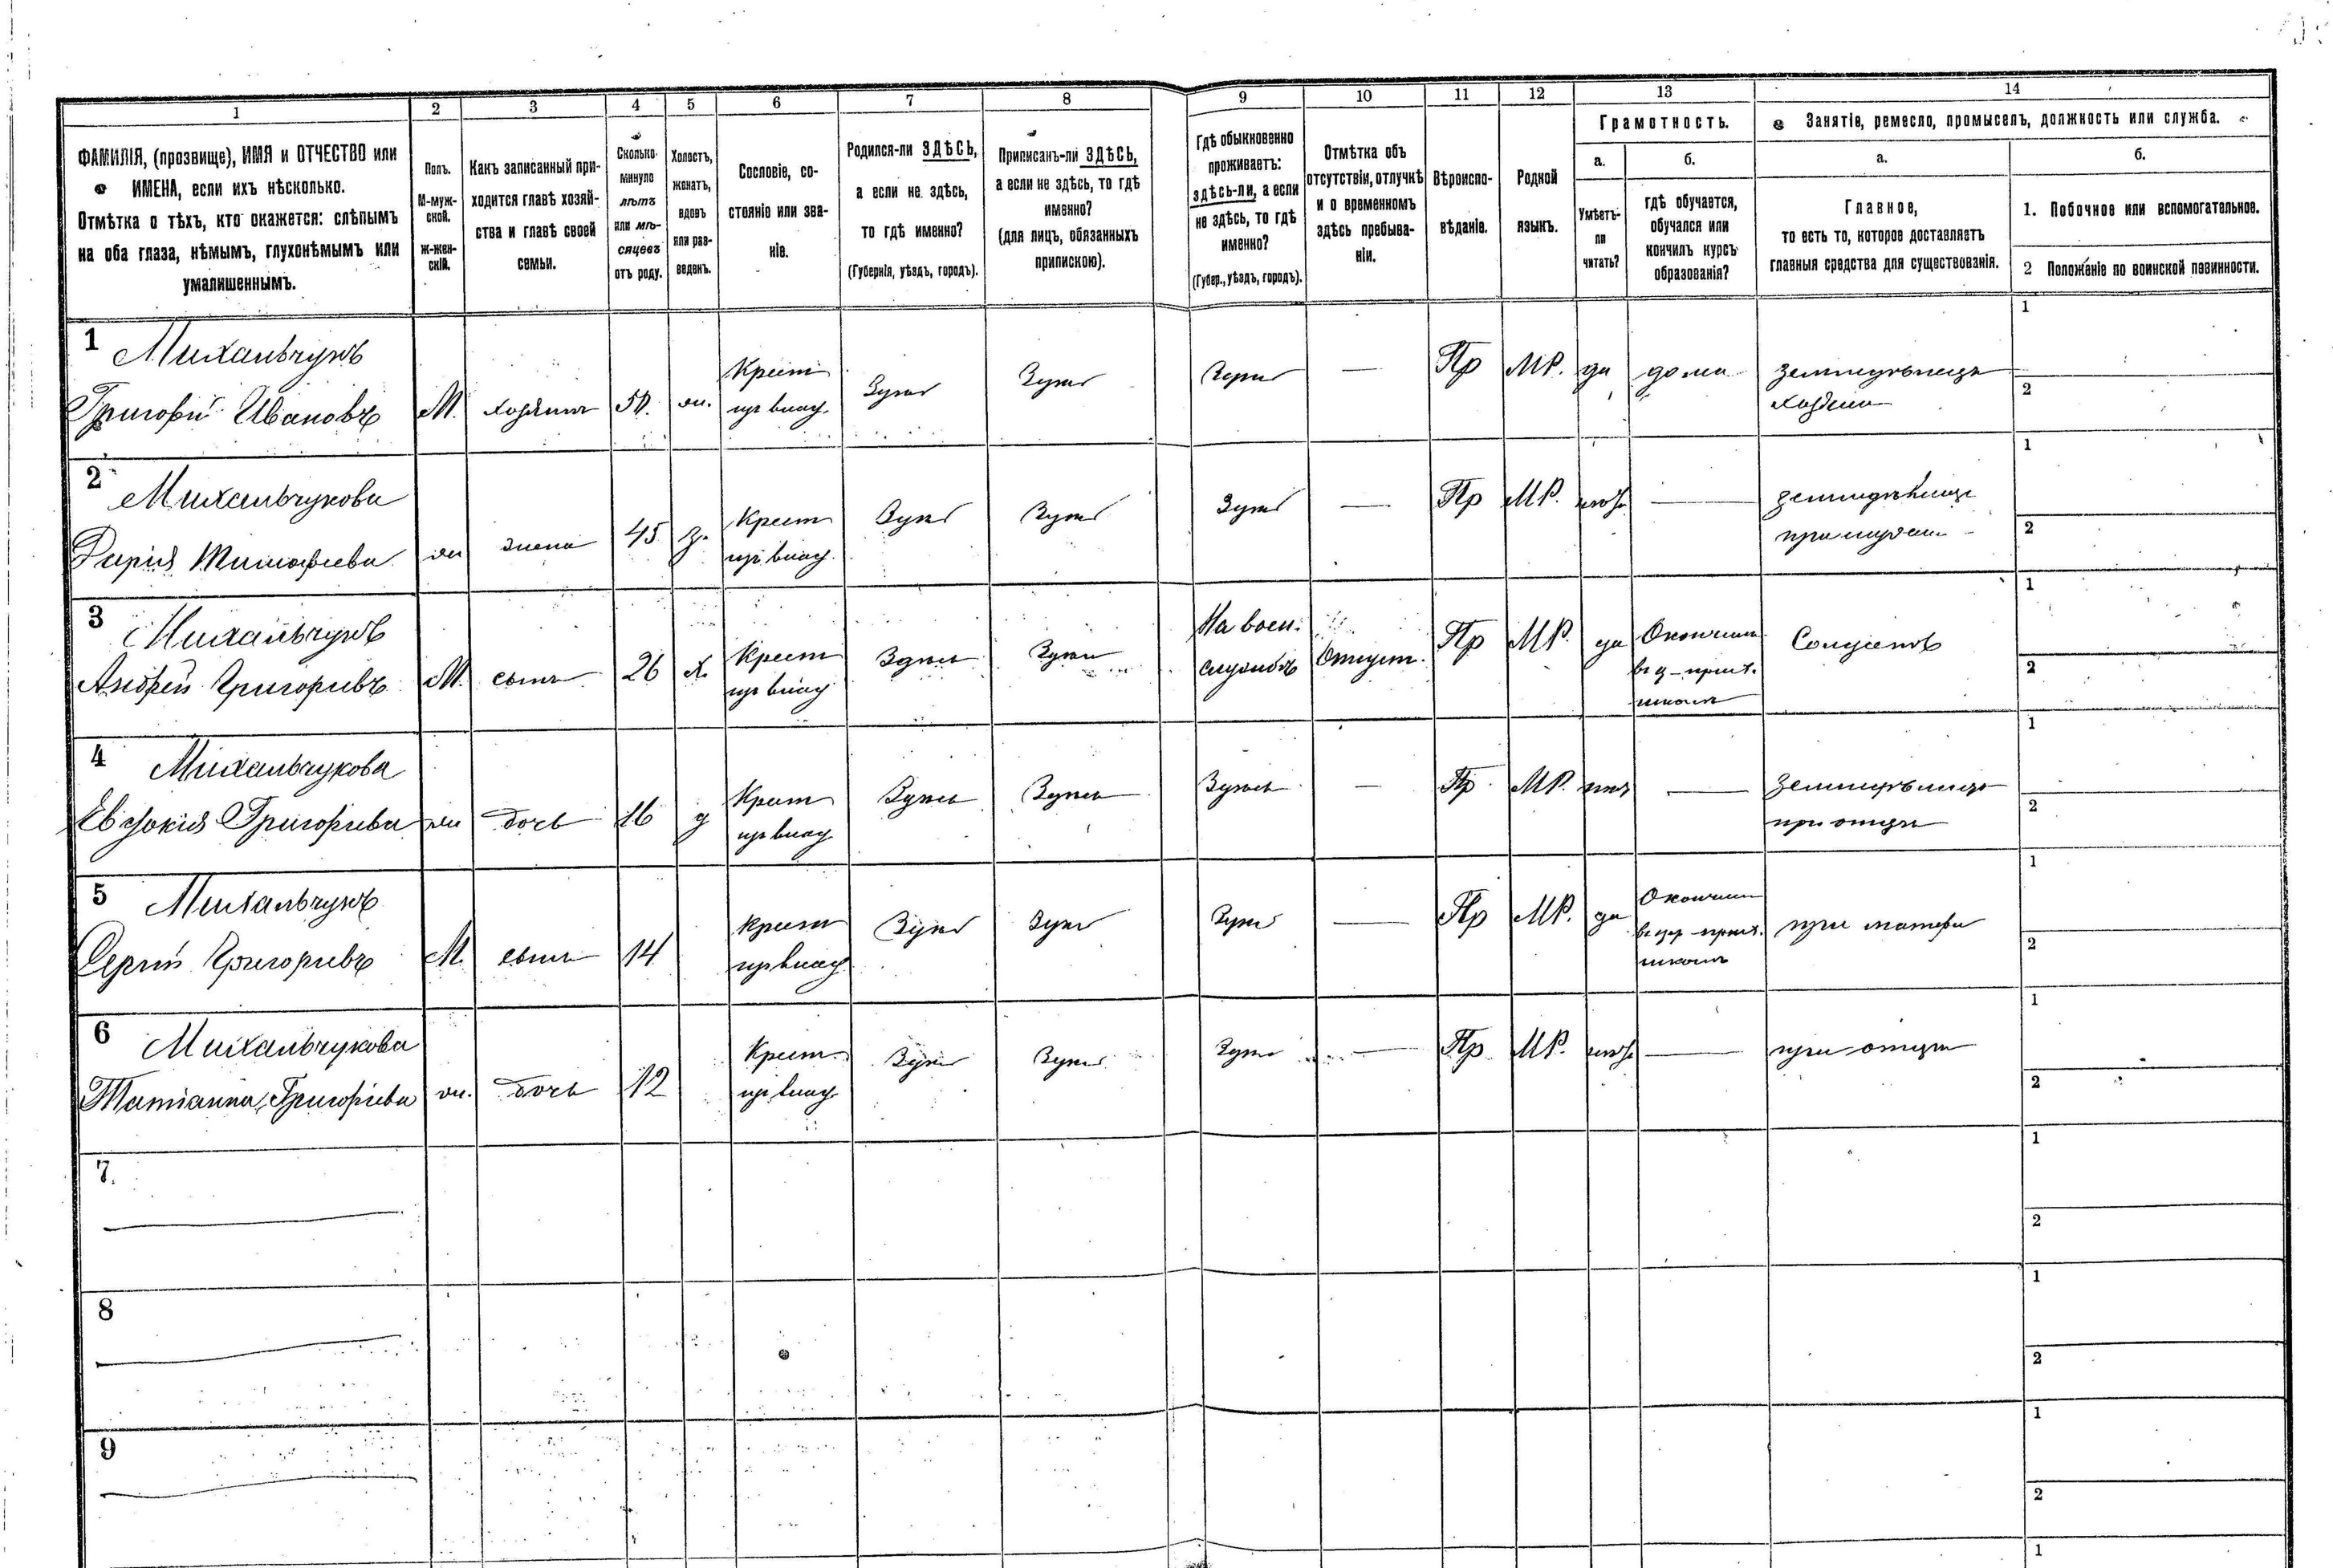 1 2 3 4 5 6 7 8 9 10 11 12 13 14
ФАМИЛІЯ, (прозвище), ИМЯ и ОТЧЕСТВО или
ИМЕНА, если ихъ нѣсколько.
Отмѣтка о тѣхъ, кто окажется: слѣпымъ
на оба глаза, нѣмымъ, глухонѣмымъ или
умалишеннымъ.
Полъ.
М-муж-
ской.
Ж-жен-
скій.
Какъ записанный при-
ходится главѣ хозяй-
ства и главѣ своей
семьи.
Сколько
минуло
лѣтъ
или мѣ-
сяцевъ
отъ роду.
Холостъ,
женатъ,
вдовъ
или раз-
веденъ.
Сословіе, со-
стояніе или зва-
ніе.
Родился-ли ЗДѢСЬ,
а если не здѣсь,
то гдѣ именно?
(Губернія, уѣздъ, городъ).
Приписанъ-ли ЗДѢСЬ,
а если не здѣсь, то гдѣ
именно?
(для лицъ, обязанныхъ
припискою).
Гдѣ обыкновенно
проживаетъ:
здѣсь-ли, а если
не здѣсь, то гдѣ
именно?
(Губер., уѣздъ, городъ).
Отмѣтка объ
отсутствіи, отлучкѣ
и о временномъ
здѣсь пребыва-
ніи.
Вѣроиспо-
вѣданіе.
Родной
языкъ.
Грамотность.
а.
Умѣетъ-
ли
читать?
б.
гдѣ обучается,
обучался или
кончилъ курсъ
образованія?
Занятіе, ремесло, промыселъ, должность или служба.
а.
Главное,
то есть то, которое доставляетъ
главныя средства для существованія.
б.
1. Побочное или вспомогательное.
2 Положеніе по воинской повинности.
1 Михальчукъ
Григорій Ивановъ М. хозяинъ 50. ж. Крест
из влад. Здѣсь Здѣсь Здѣсь — Пр МР. да дома земледѣлецъ
хозяинъ
1
2
2 Михальчукова
Дарія Тимофѣева ж жена 45 з. Крест
из влад. Здѣсь Здѣсь Здѣсь — Пр МР. нѣтъ — земледѣлица
при мужѣ
1
2
3 Михальчукъ
Андрей Григорьевъ М. сынъ 26 х. Крест
из влад Здѣсь Здѣсь На воен.
службѣ Отсут. Пр МР. да Окончилъ
въ ц-прих.
школѣ
Солдатъ
1
2
4 Михальчукова
Евдокія Григорьева ж дочь 16 д Крест
из влад Здѣсь Здѣсь Здѣсь — Пр. МР. нѣтъ — земледѣлица
при отцѣ
1
2
5 Михальчукъ
Сергій Григорьевъ М. сынъ 14 крест
из влад Здѣсь Здѣсь Здѣсь — Пр МР. да Окончилъ
въ цер-прих.
школѣ
при матери
1
2
6 Михальчукова
Татіанна Григорьева ж. дочь 12 Крест.
из влад. Здѣсь Здѣсь Здѣсь — Пр. МР. нѣтъ — при отцѣ
1
2
7.
1
2
8
1
2
9
1
2
1